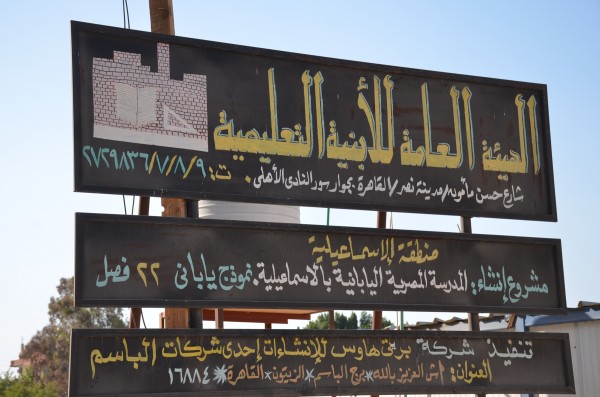 الهيئة العامة للأبنية التعليمية
شارع حسن مأمون/مدينة نصر/القاهرة بجوار سور النادى الأهلى. ت: ٢٧٢٩٨٣٦/٧/٨/٩
منطقة الإسماعيلية
مشروع إنشاء: المدرسة المصرية اليابانية بالاسماعيلية. نموذج يابانى ٢٢ فصل
تنفيذ شركة بريتى هاوس للإنشاءات إحدى شركات الباسم
العنوان: ١ش العزيز بالله * برج الباسم * الزيتون * القاهرة * ١٦٨٨٤